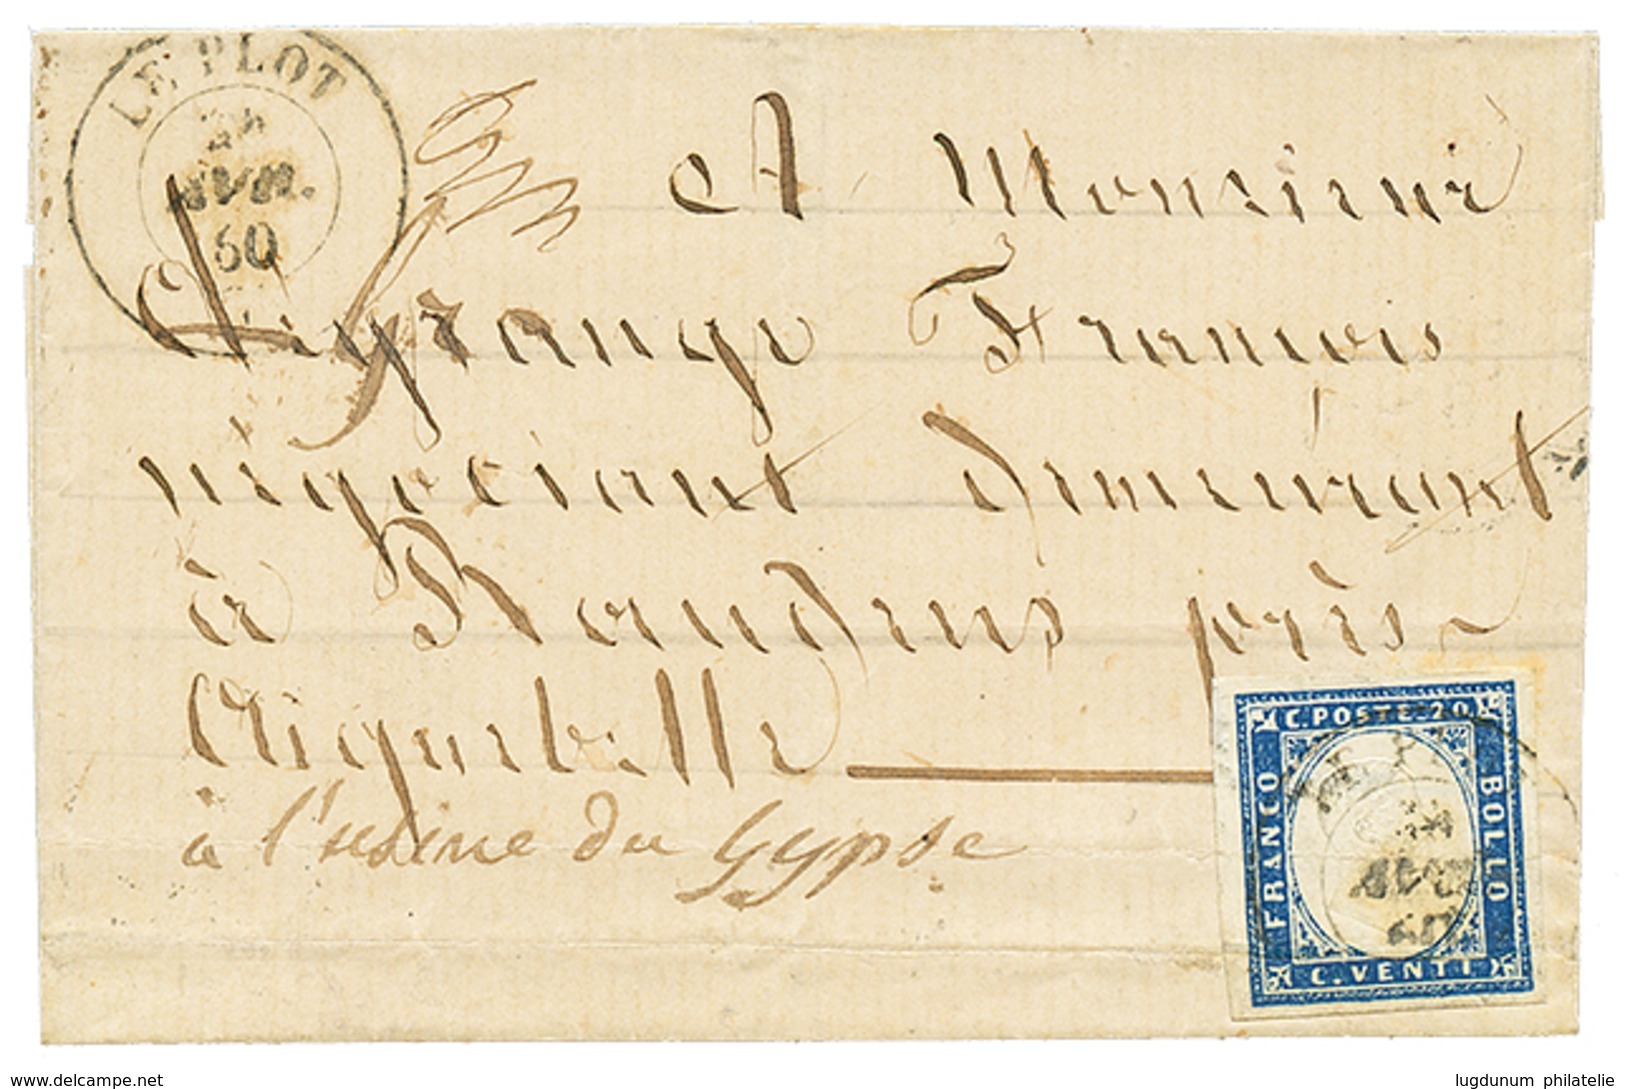 LE PLOT
24
AVR.
60
A Monsieur
Lagrange François
négociant demeurant
à Randens près
Aiguebelle
à l'usine du Gypse
C. POSTE 20
FRANCO
BOLLO
C. VENTI
AVR
60
delcampe.net
lugdunum philatelie